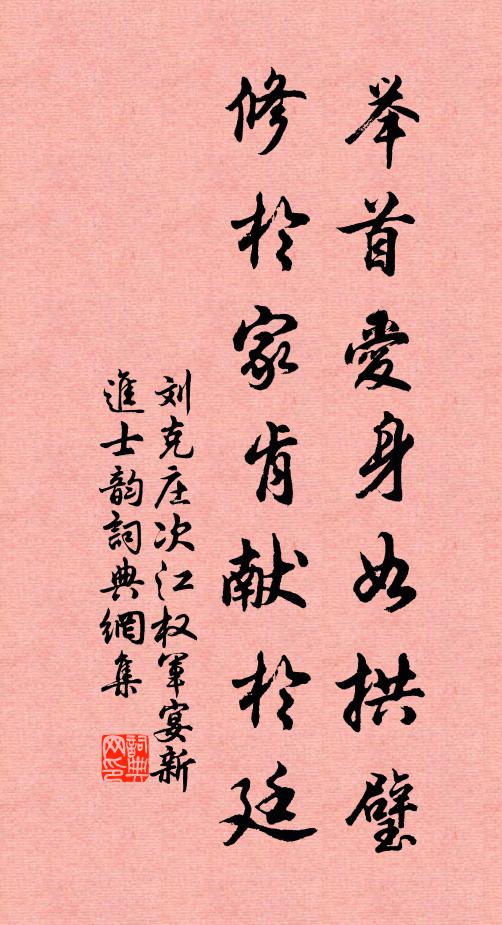 举首爱身如拱璧
修於家肯献於廷
刘克庄次江权军宴新
進士韵詞典網集
詞典
网印